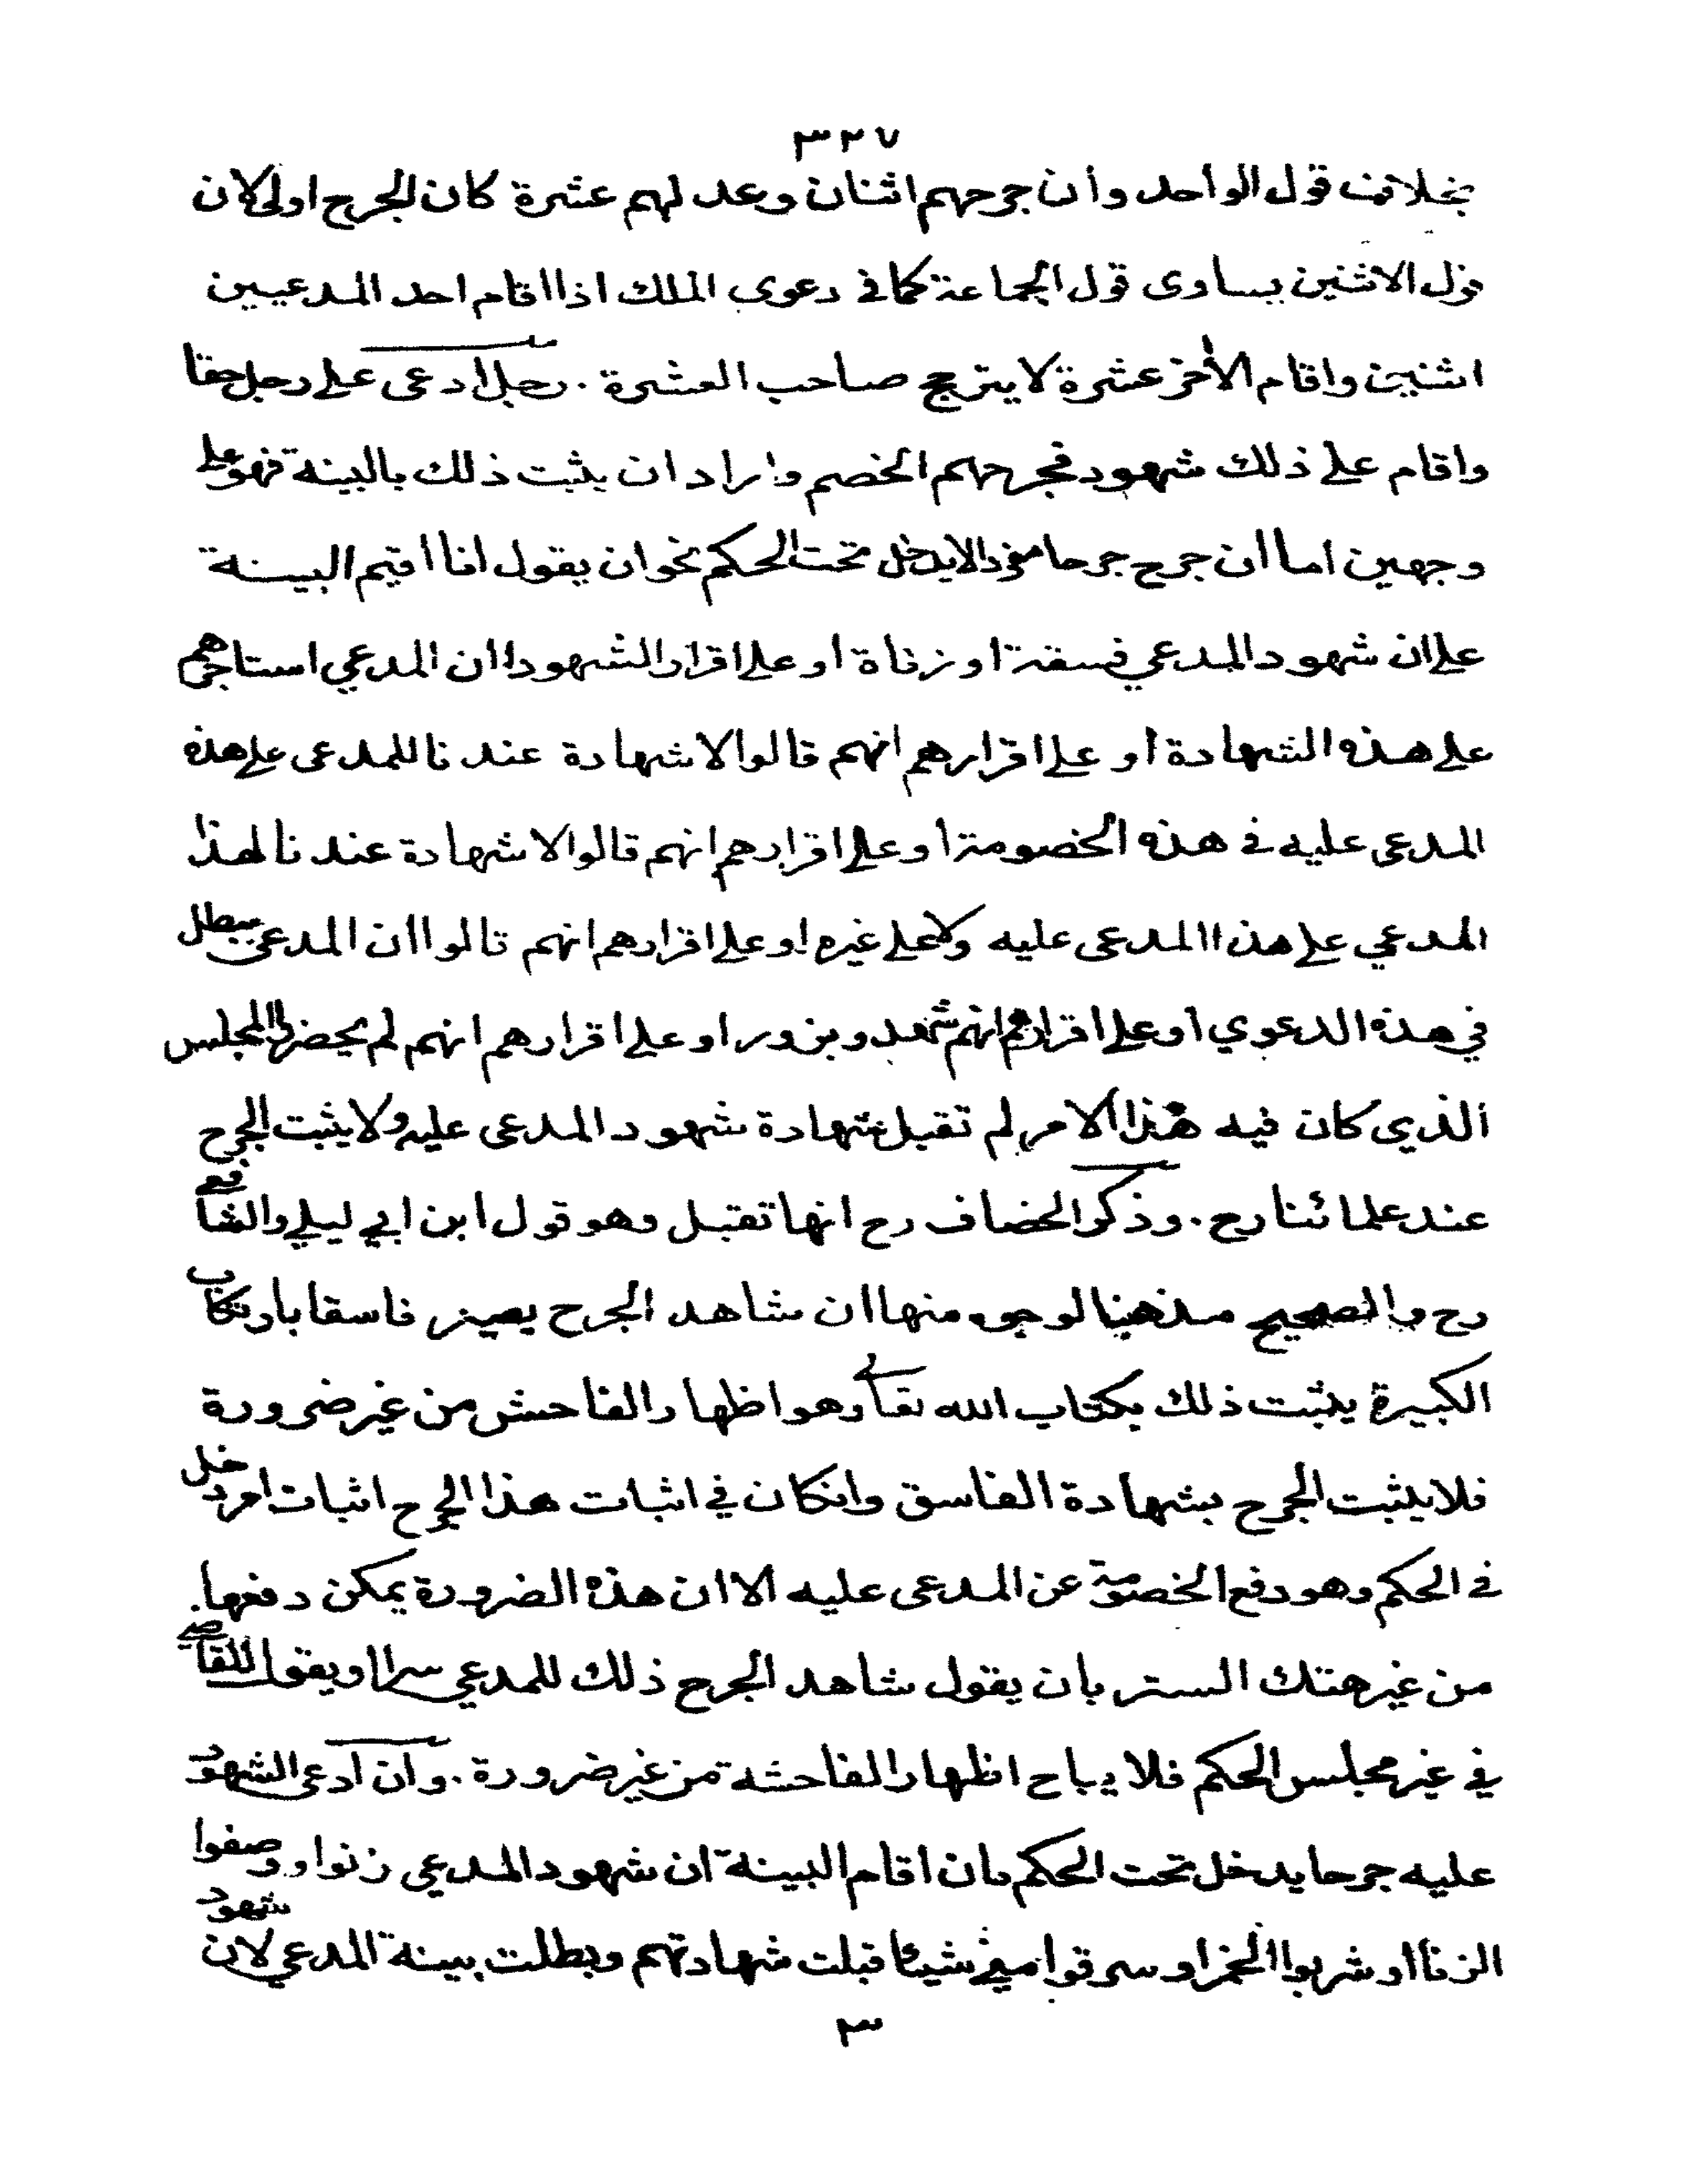 ٣٢٧
بخلاف قول الواحد وان جرحهم اثنان وعدلهم عشرة كان الجرح اولى لان
قول الاثنين يساوى قول الجماعة كما في دعوى الملك اذا اقام احد المدعيين
اثنين واقام الأخر عشرة لا يترجح صاحب العشرة . رجل ادعى على رجل حقا
واقام على ذلك شهود فجرحهم الخصم واراد ان يثبت ذلك بالبينة فهو على
وجهين اما ان جرح جرحا مفردا لا يدخل تحت الحكم نحو ان يقول انا اقيم البينة
على ان شهود المدعي فسقة او زناة او على اقرار الشهود ان المدعي استاجرهم
على هذه الشهادة أو على اقرارهم انهم قالوا لا شهادة عندنا للمدعى على هذه
المدعى عليه في هذه الخصومة أو على اقرارهم انهم قالوا لا شهادة عندنا لهذا
المدعي على هذا المدعى عليه ولا على غيره او على اقرارهم انهم قالوا ان المدعى يبطل
في هذه الدعوي او على اقرارهم انهم شهدوا بزور او على اقرارهم انهم لم يحضروا المجلس
الذي كان فيه هذا الامر لم تقبل شهادة شهود المدعى عليه ولا يثبت الجرح
عند علمائنا رح . وذكر الخصاف رح انها تقبل وهو قول ابن ابي ليلي والشافعي
رح والصحيح مذهبنا لوجوه منها ان شاهد الجرح يصير فاسقا بارتكاب
الكبيرة يثبت ذلك بكتاب الله تعالى وهو اظهار الفاحش من غير ضرورة
فلا يثبت الجرح بشهادة الفاسق وانكان في اثبات هذا الجرح اثبات امر دخل
في الحكم وهو دفع الخصومة عن المدعى عليه الا ان هذه الضرورة يمكن دفعها
من غير هتك الستر بان يقول شاهد الجرح ذلك للمدعي سرا او يقول للقاضي
في غير مجلس الحكم فلا يباح اظهار الفاحشة من غير ضرورة . وان ادعى الشهود
عليه جرحا يدخل تحت الحكم بان اقام البينة ان شهود المدعي زنوا و وصفوا
الزنا او شربوا الخمر او سرقوا مني شيئا قبلت شهادتهم وبطلت بينة المدعي لان شهود
٣